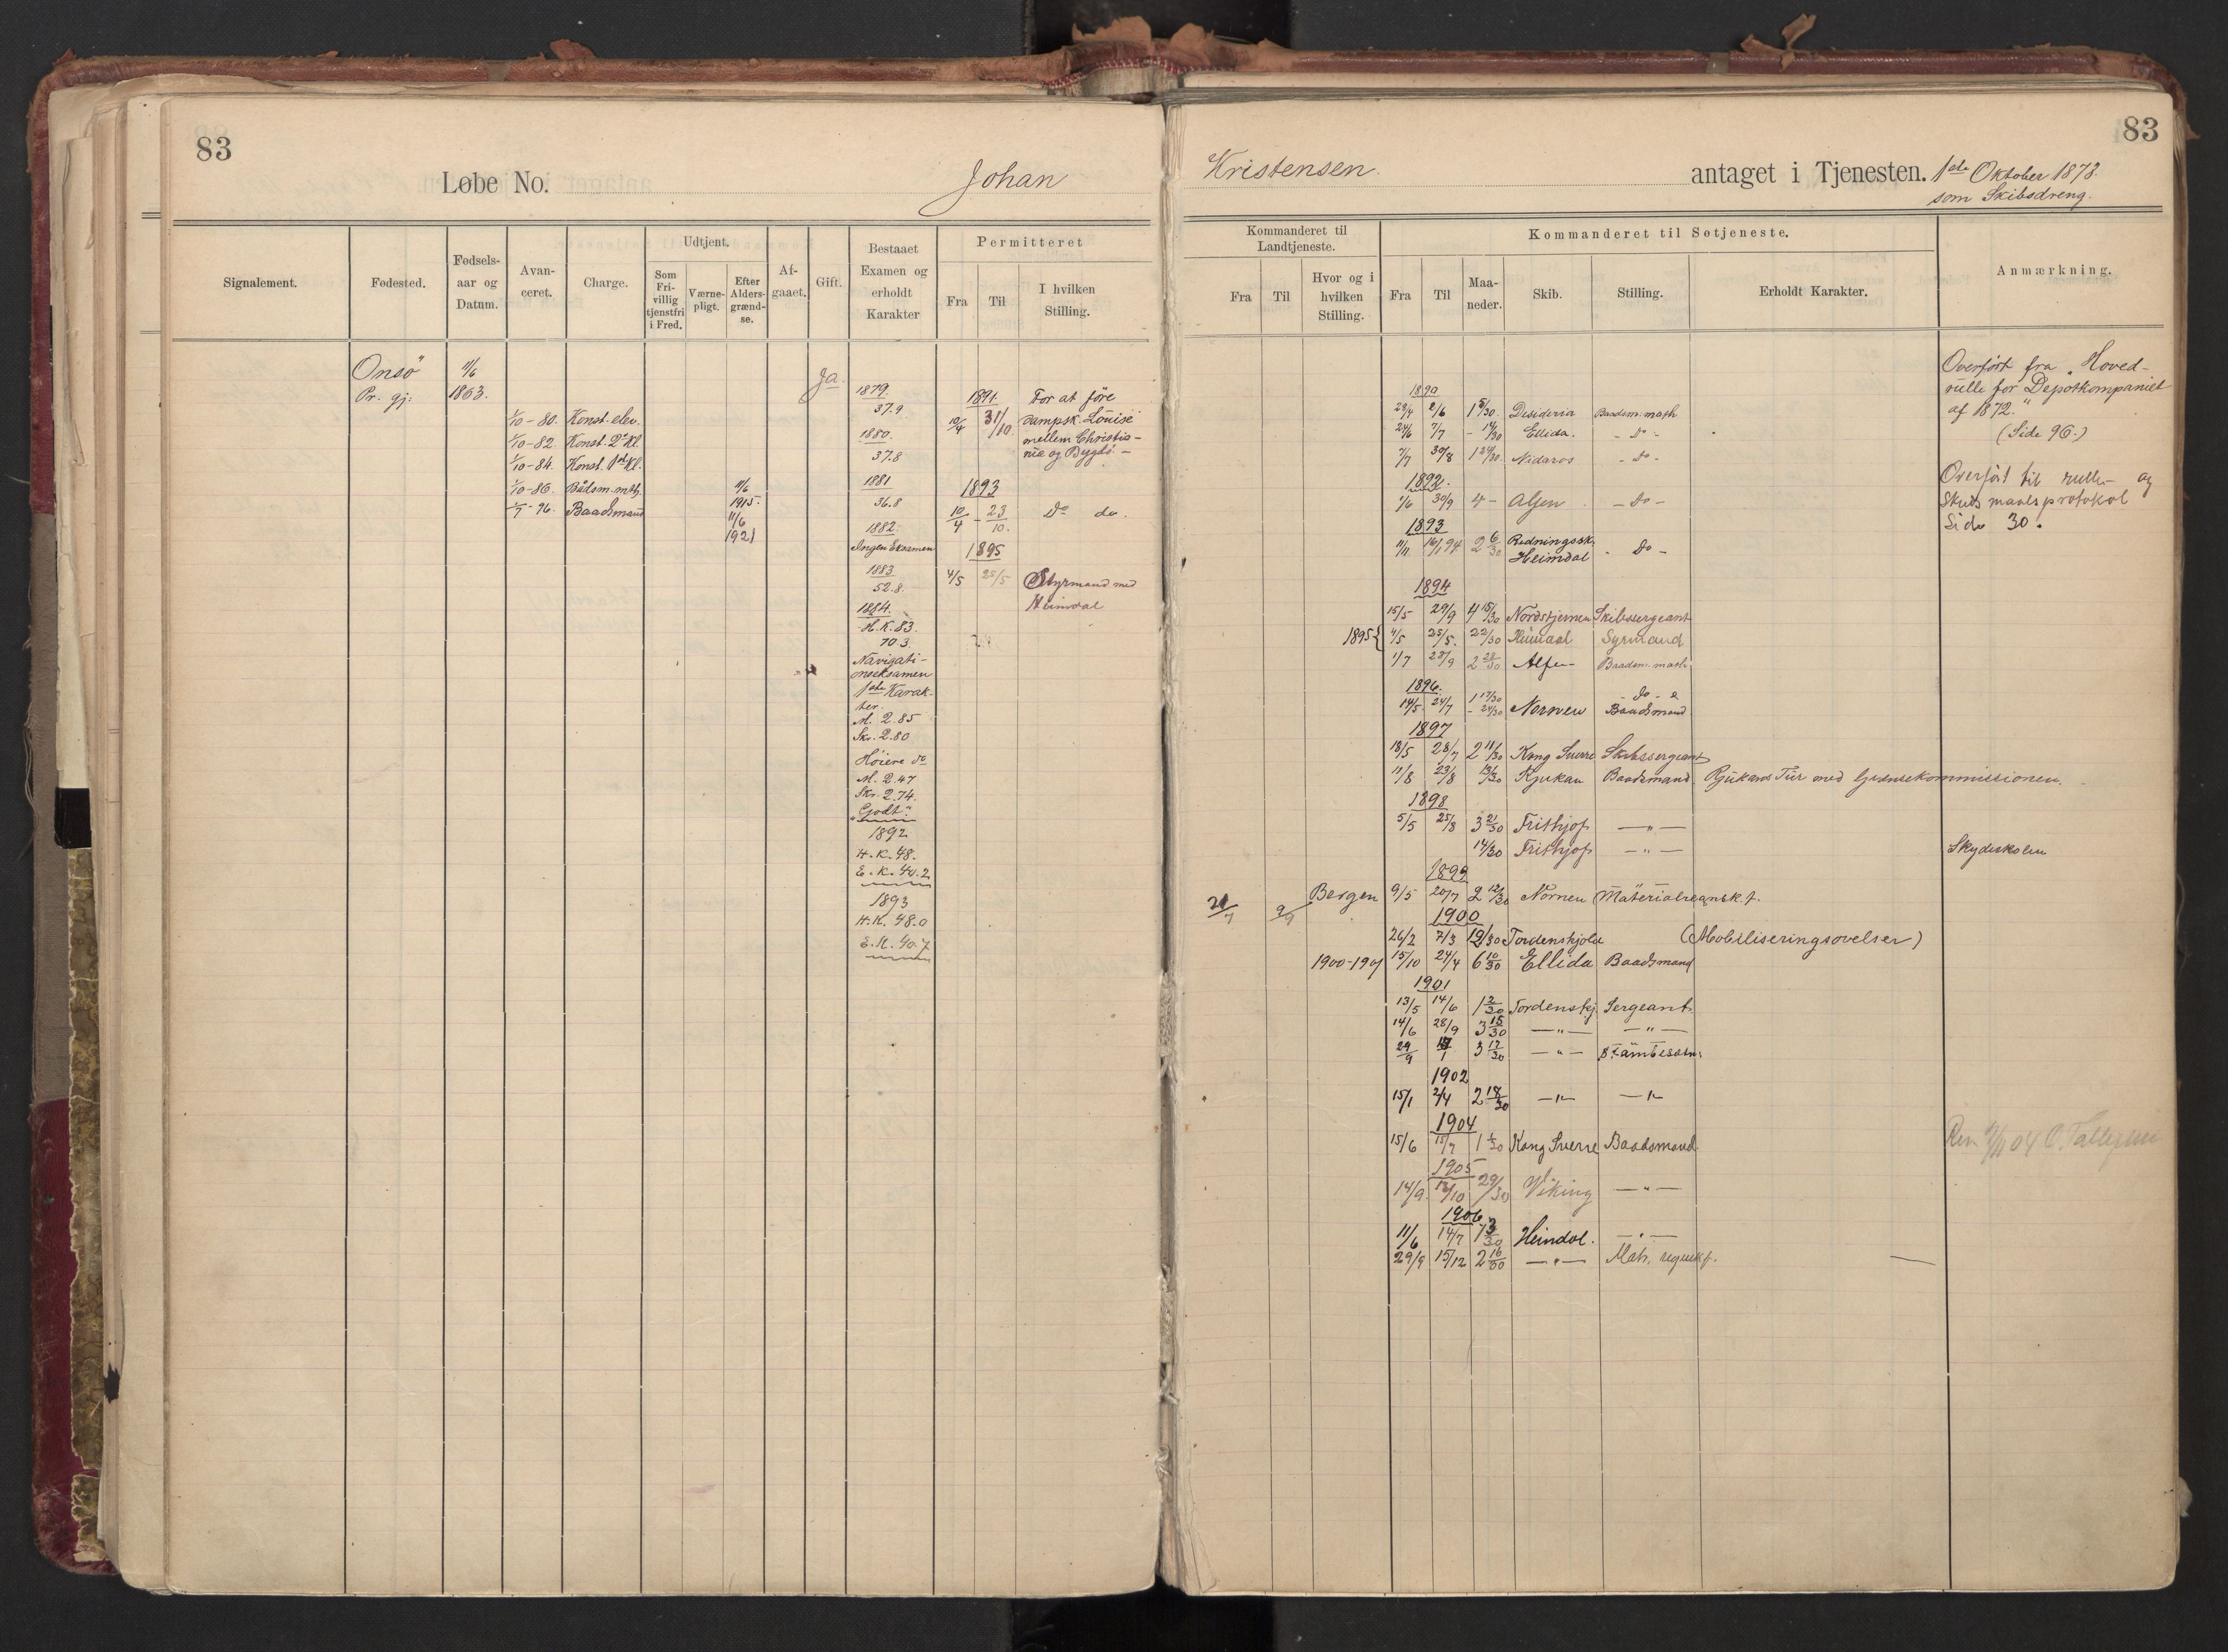 83
Løbe No.
Johan
Signalement.
Fødested.
Fødsels-
aar og
Datum.
Avan-
ceret.
Charge.
Udtjent.
Som
Fri-
villig
tjenstfri
i Fred.
Værne-
pligt.
Efter
Alders-
grænd-
se.
Af-
gaaet.
Gift.
Bestaaet
Examen og
erholdt
Karakter
Permitteret
Fra
Til
I hvilken
Stilling.
Onsö
Pr. gj:
11/6
1863.
1/10 - 80. Konst. elev.
1/10 - 82. Konst. 2 Kl.
1/10 - 84. Konst. 1ste Kl.
1/10 - 86. Bådsm. mth.
1/7 - 96. Baadsmand
11/6
1915.
11/6
1921
Ja.
1879.
37.9
1880.
37.8
1881
36.8
1882.
Ingen Eksamen
1883
52.8.
1884.
H.K. 83.
70 3.
Navigati-
onseksamen
1ste Karak-
ter.
M. 2.85
Skr. 2.80
Höiere do
M. 2.47
Skr. 2.74.
"Godt".
1892
H.K. 48.
E.K. 44.2
1893
H.K. 48.0
E.K. 40.7
1891.
10/4 31/10.
For at före
Dampsk. Louise
mellem Christia-
nia og Bygdö. -
1893
10/4 - 23/10.
Do do.
1895
4/5 25/5
Styrmand med
Heimdal
83
Kristensen.
antaget i Tjenesten. 1ste Oktober 1878.
som Skibsdreng.
Kommanderet til
Landtjeneste.
Fra
Til
Hvor og i
hvilken
Stilling.
Kommanderet til Søtjeneste.
Fra
Til
Maa-
neder.
Skib.
Stilling.
Erholdt Karakter.
Anmærkning.
1890
2/6 1 Desideria Baadsm. math
24/6 7/7 - 14/30 Ellida. - Do -
7/7 30/8 1 24/30. Nidaros - Do -
1892.
1/6 30/9 4 - Alfen - Do -
1893
11/11 16/1 94 2 6/30 Redningssk.
Heimdal - Do -
1894
15/5 29/9 4 15/30 Nordstjernen Skibssergeant
1895 { 4/5 25/5. 22/30 Heimdal Syrmand
1/7 28/9 2 28/30 Alfen Baadsm. math
1896.
14/5 24/7 1 17/30 - 24/30 Nornen - do - &
Baadsmand
1897
18/5 28/7 2 11/30 Kong Sverre Skibssergeant
11/8 23/8 13/30 Rjukan Baadsmand Rjukans Tur med Grænsekommissionen.
1898
5/5 25/8 3 21/30 Frithjof - " -
14/30 Frithjof - " - Skydeskolen
1899
21/7 9/9 Bergen 9/5 20/7 2 12/30 Nornen Materialregnsk.f.
1900
26/2 7/3 12/30 Tordenskjold (Mobiliseringsøvelser)
1900-1901 15/10 24/4 6 10/30 Ellida Baadsmand
1901
13/5 14/6 1 2/30 Tordenskj. Sergeant.
14/6 28/9 3 15/30 - " - - " -
29/9 3 17/30 - " -
1902
15/1 2/4 2 18/30 - " - - " -
1904
15/6 15/7 1 1/30 Kong Sverre Baadsmand
1905
14/9. 12/10 29/30 Viking - " -
1906
11/6 14/7 1 3/30 Heimdal. - " -
29/9 15/12 2 16/30 - " - Mat. regnsk f.
Overfört fra "Hoved-
rulle for Depotkompaniet
af 1872."
(Side 96.)
Overfört til rulle- og
Skudsmaalsprotokol
Side 30.